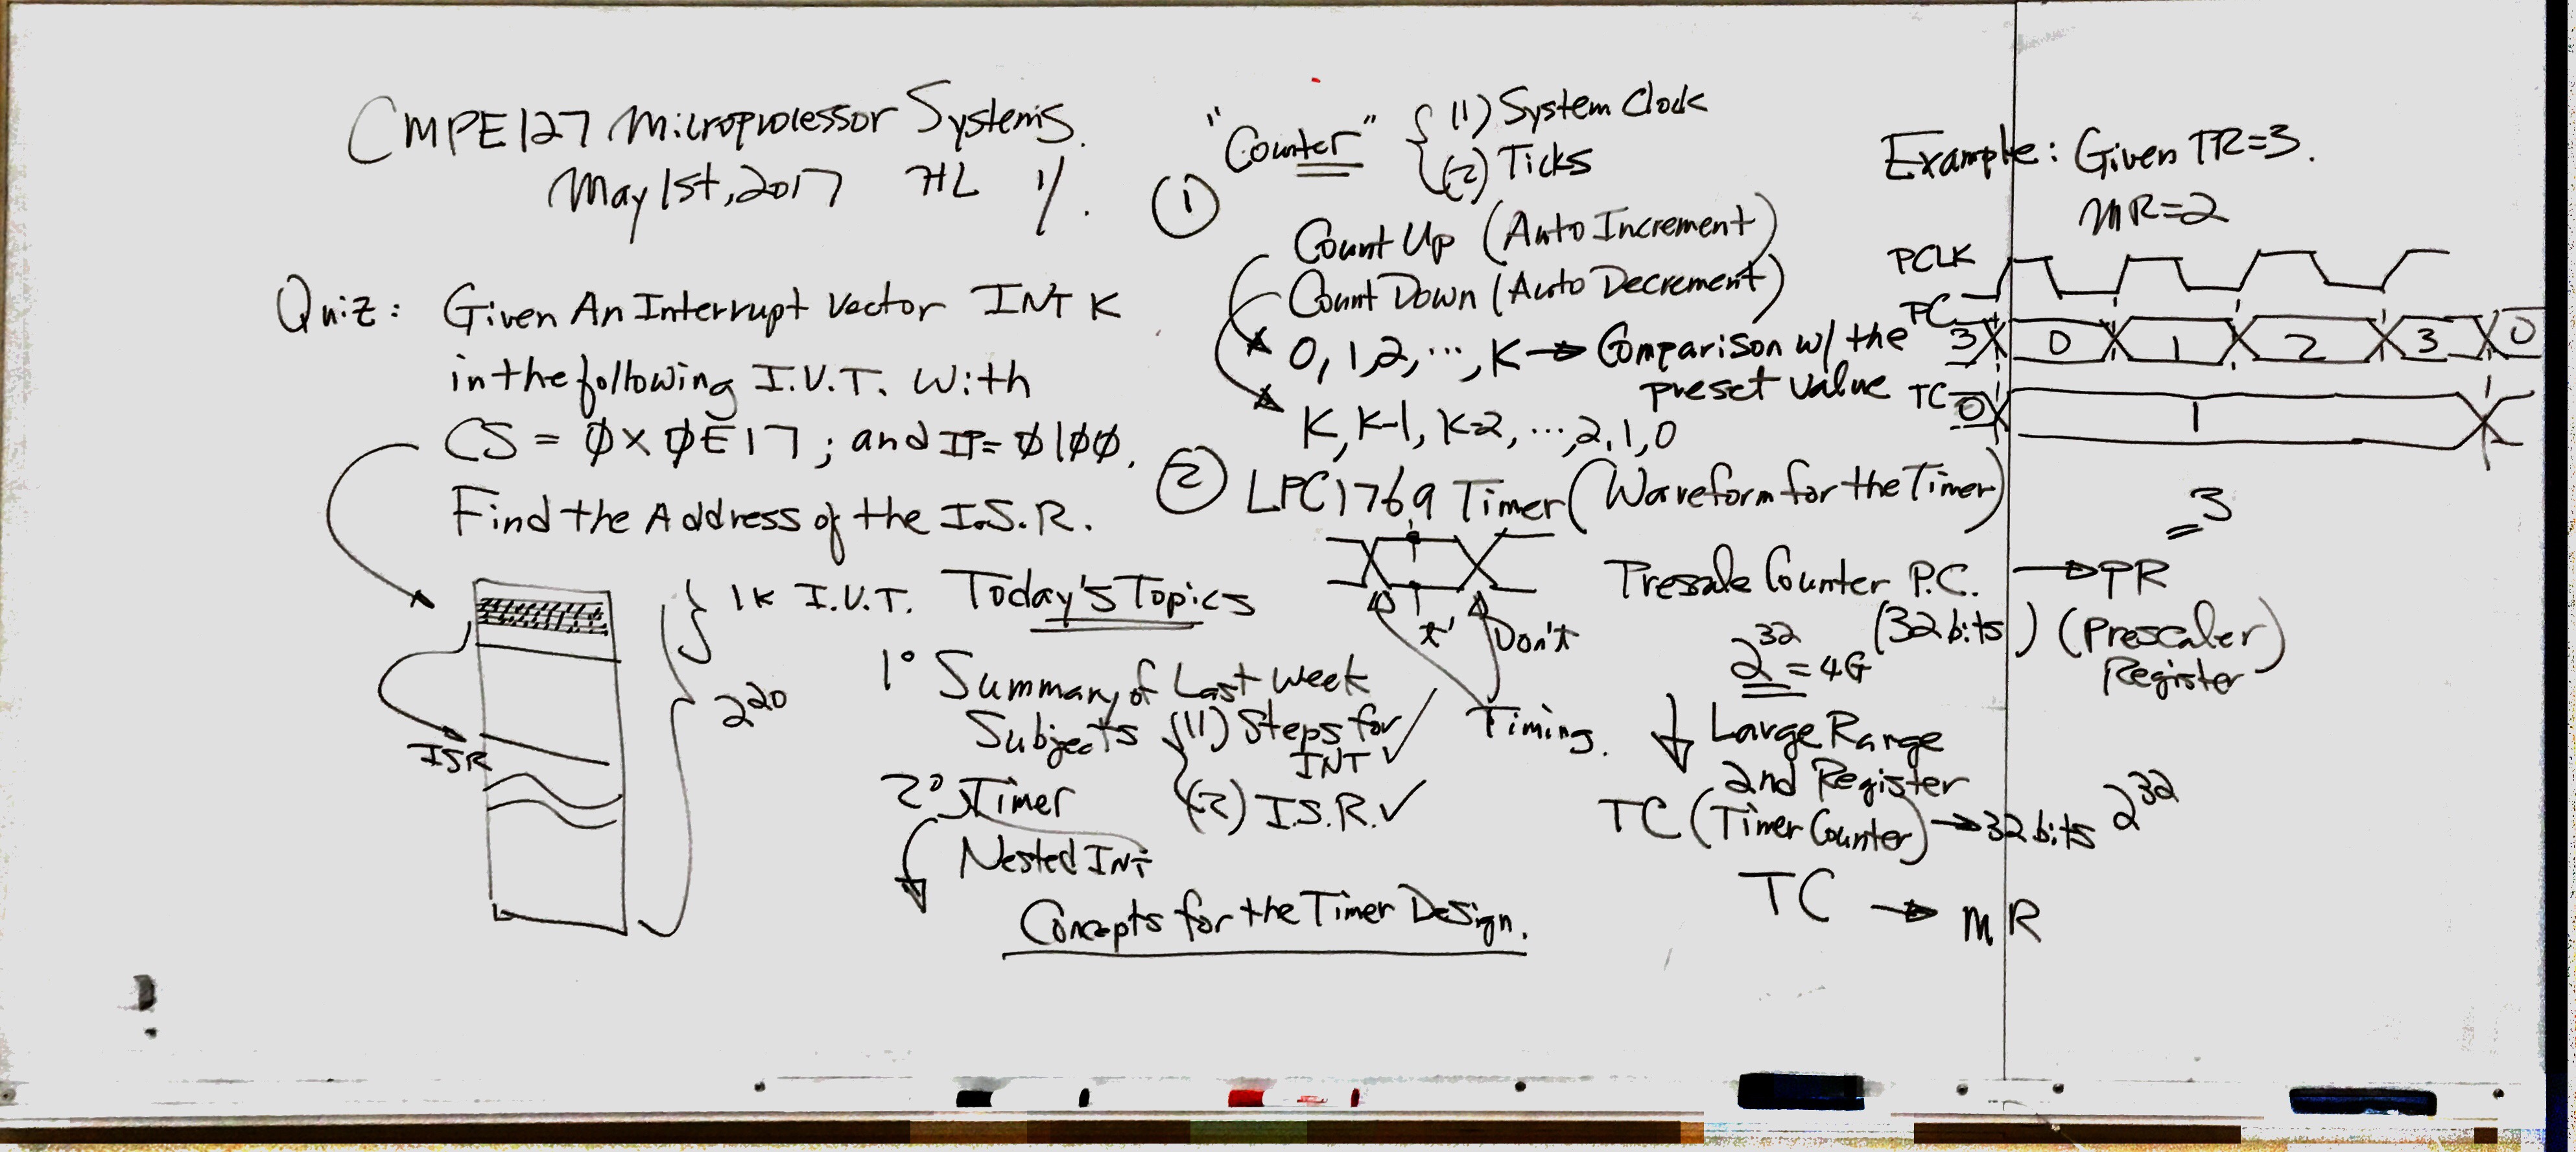 CMPE127 Microprocessor Systems.
May 1st, 2017 HL 1/.
Quiz: Given An Interrupt Vector INT K
in the following I.V.T. With
CS = 0x0E17; and IP= 0100.
Find the Address of the I.S.R.
1K I.V.T.
2^20
ISR
Today's Topics
1° Summary of Last Week
Subjects { (1) Steps for
INT ✓
(2) I.S.R. ✓
2° Timer
Nested INT
Concepts for the Timer Design.
① "Counter" { (1) System Clock
(2) Ticks
Count Up (Auto Increment)
Count Down (Auto Decrement)
0, 1, 2, ..., K → Comparison w/ the
preset value
K, K-1, K-2, ..., 2, 1, 0
② LPC1769 Timer (Waveform for the Timer)
t' Don't
Timing.
Prescale Counter P.C. → PR
(32 bits) (Prescaler
Register)
2^32 = 4G
↓ Large Range
2nd Register
TC (Timer Counter) → 32 bits 2^32
TC → MR
Example: Given PR=3.
MR=2
PCLK
PC 3 0 1 2 3 0
TC 0 1
3